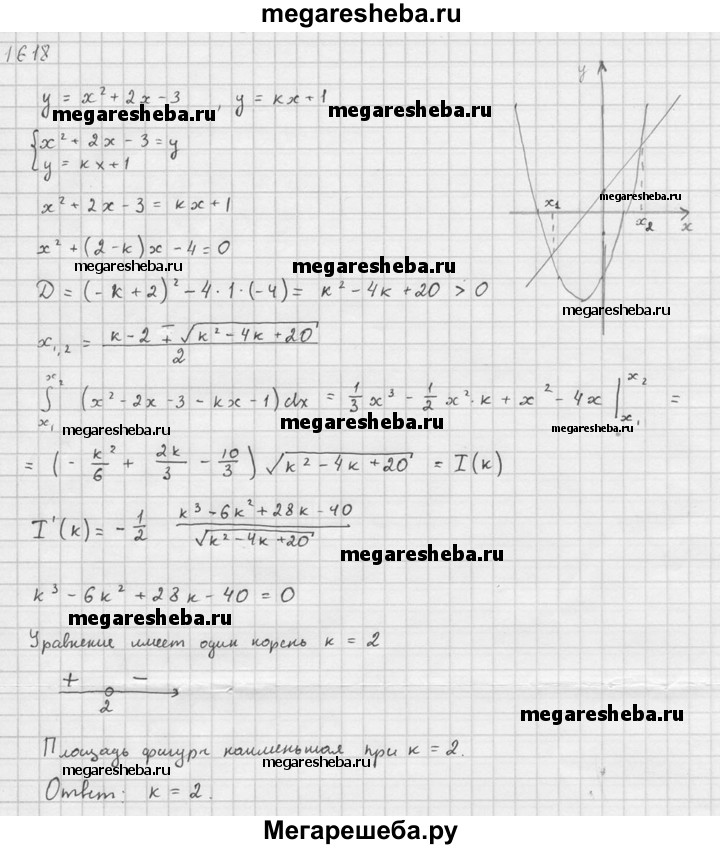 megaresheba.ru
1618
y = x² + 2x - 3 , y = kx + 1
megaresheba.ru megaresheba.ru
{ x² + 2x - 3 = y
y = kx + 1
x² + 2x - 3 = kx + 1
x² + (2 - k)x - 4 = 0
megaresheba.ru
D = (-k + 2)² - 4 · 1 · (-4) = k² - 4k + 20 > 0
x₁,₂ = (k - 2 ∓ √(k² - 4k + 20)) / 2
megaresheba.ru
∫ₓ₁ˣ² (x² - 2x - 3 - kx - 1) dx = 1/3 x³ - 1/2 x² · k + x² - 4x |ₓ₁ˣ² =
megaresheba.ru megaresheba.ru
= (- k²/6 + 2k/3 - 10/3) √(k² - 4k + 20) = I(k)
I'(k) = - 1/2 (k³ - 6k² + 28k - 40) / √(k² - 4k + 20)
megaresheba.ru
k³ - 6k² + 28k - 40 = 0
megaresheba.ru
Уравнение имеет один корень k = 2
+ -
2
megaresheba.ru
Площадь фигуры наименьшая при k = 2.
megaresheba.ru megaresheba.ru
Ответ: k = 2.
y
megaresheba.ru
x₁ x₂ x
megaresheba.ru
Мегарешеба.ру